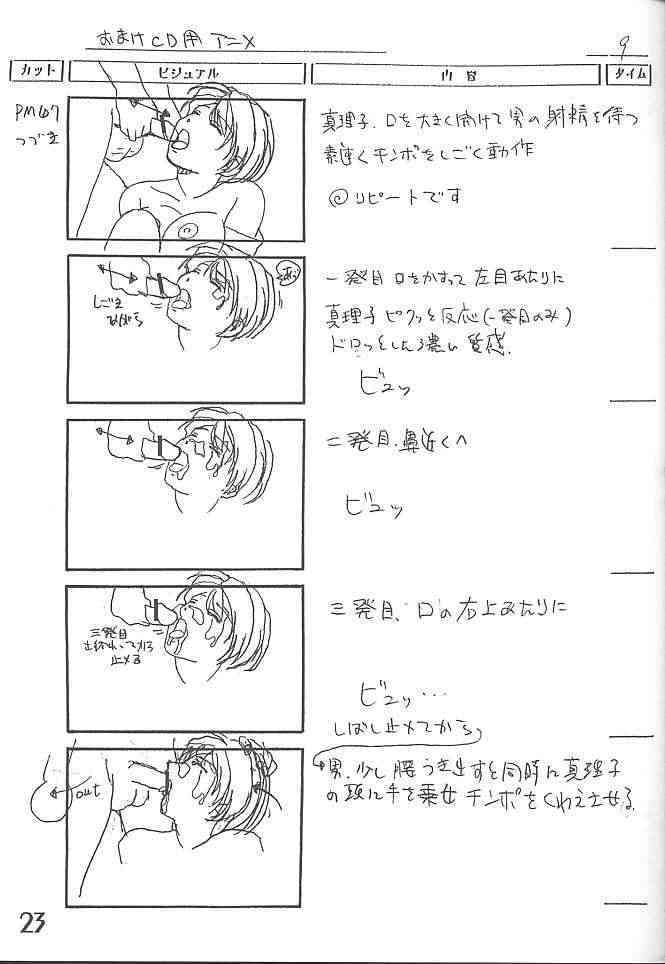 おまけCD用アニメ
9
カット
ビジュアル
内容
タイム
PM47
つづき
真理子、口を大きく開けて男の射精を待つ
素速くチンポをしごく動作
◎リピートです
しごき
ながら
一発目 口をかすって左目あたりに
真理子ピクッと反応(一発目のみ)
ドロっとした濃い質感.
ビュッ
二発目、鼻近くへ
ビュッ
三発目
止める
三発目、口の右上あたりに
ビュッ…
しばし止めてから
out
男、少し腰うき出すと同時に真理子
の頭に手を乗せチンポをくわえさせる
23